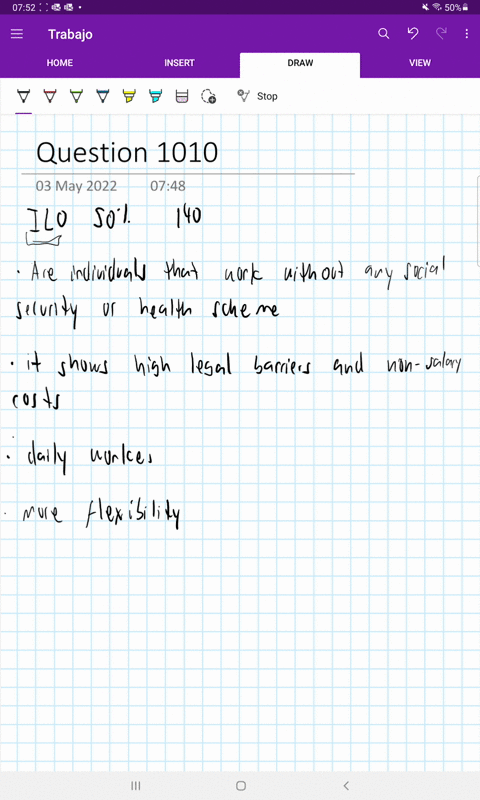 07:52 50%
Trabajo
HOME INSERT DRAW VIEW
Stop
Question 1010
03 May 2022 07:48
ILO 50% 140
· Are individuals that work without any social
security or health scheme
· it shows high legal barriers and non-salary
costs
· daily workes
· more flexibility